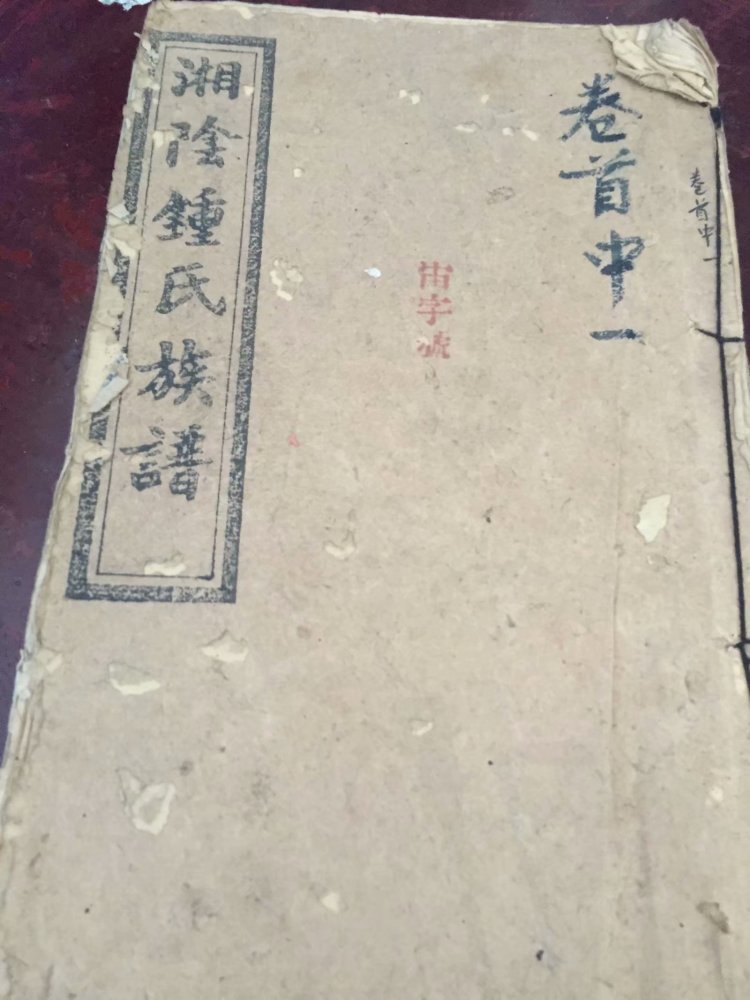 卷首中一
卷首中一
宙字號
湘陰鍾氏族譜